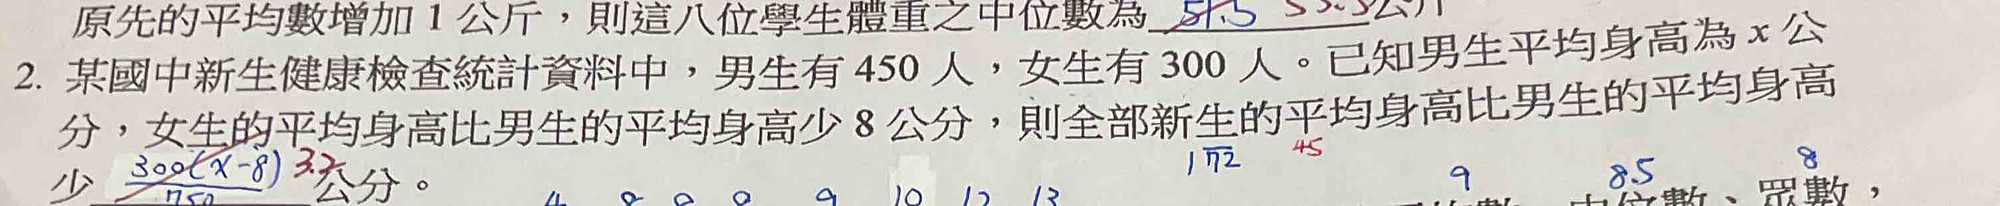 原先的平均數增加 1 公斤,則這八位學生體重之中位數為 51.5 53.5 公斤
2. 某國中新生健康檢查統計資料中,男生有 450 人,女生有 300 人。已知男生平均身高為 x 公
分,女生的平均身高比男生的平均身高少 8 公分,則全部新生的平均身高比男生的平均身高
少 300(x-8) 3.2 公分。
750
172 45
9 10 12 13
9 8.5 8
中位數、眾數,